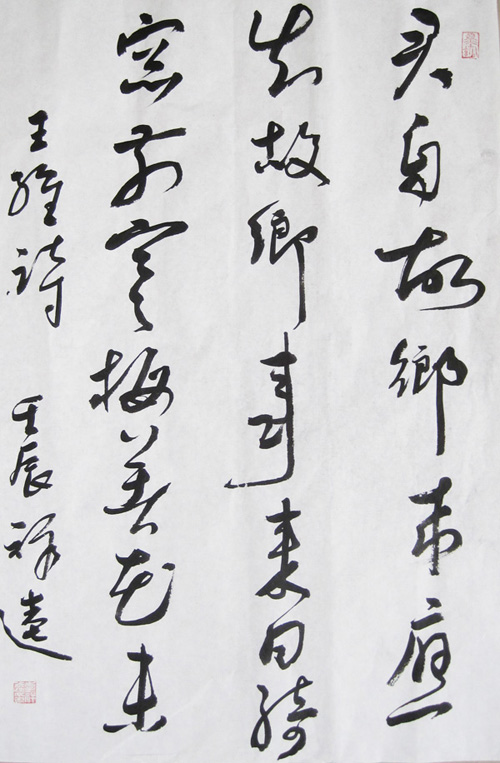 君自故鄉來應
知故鄉事來日綺
窓前寒梅着花未
王維詩 壬辰祥遠